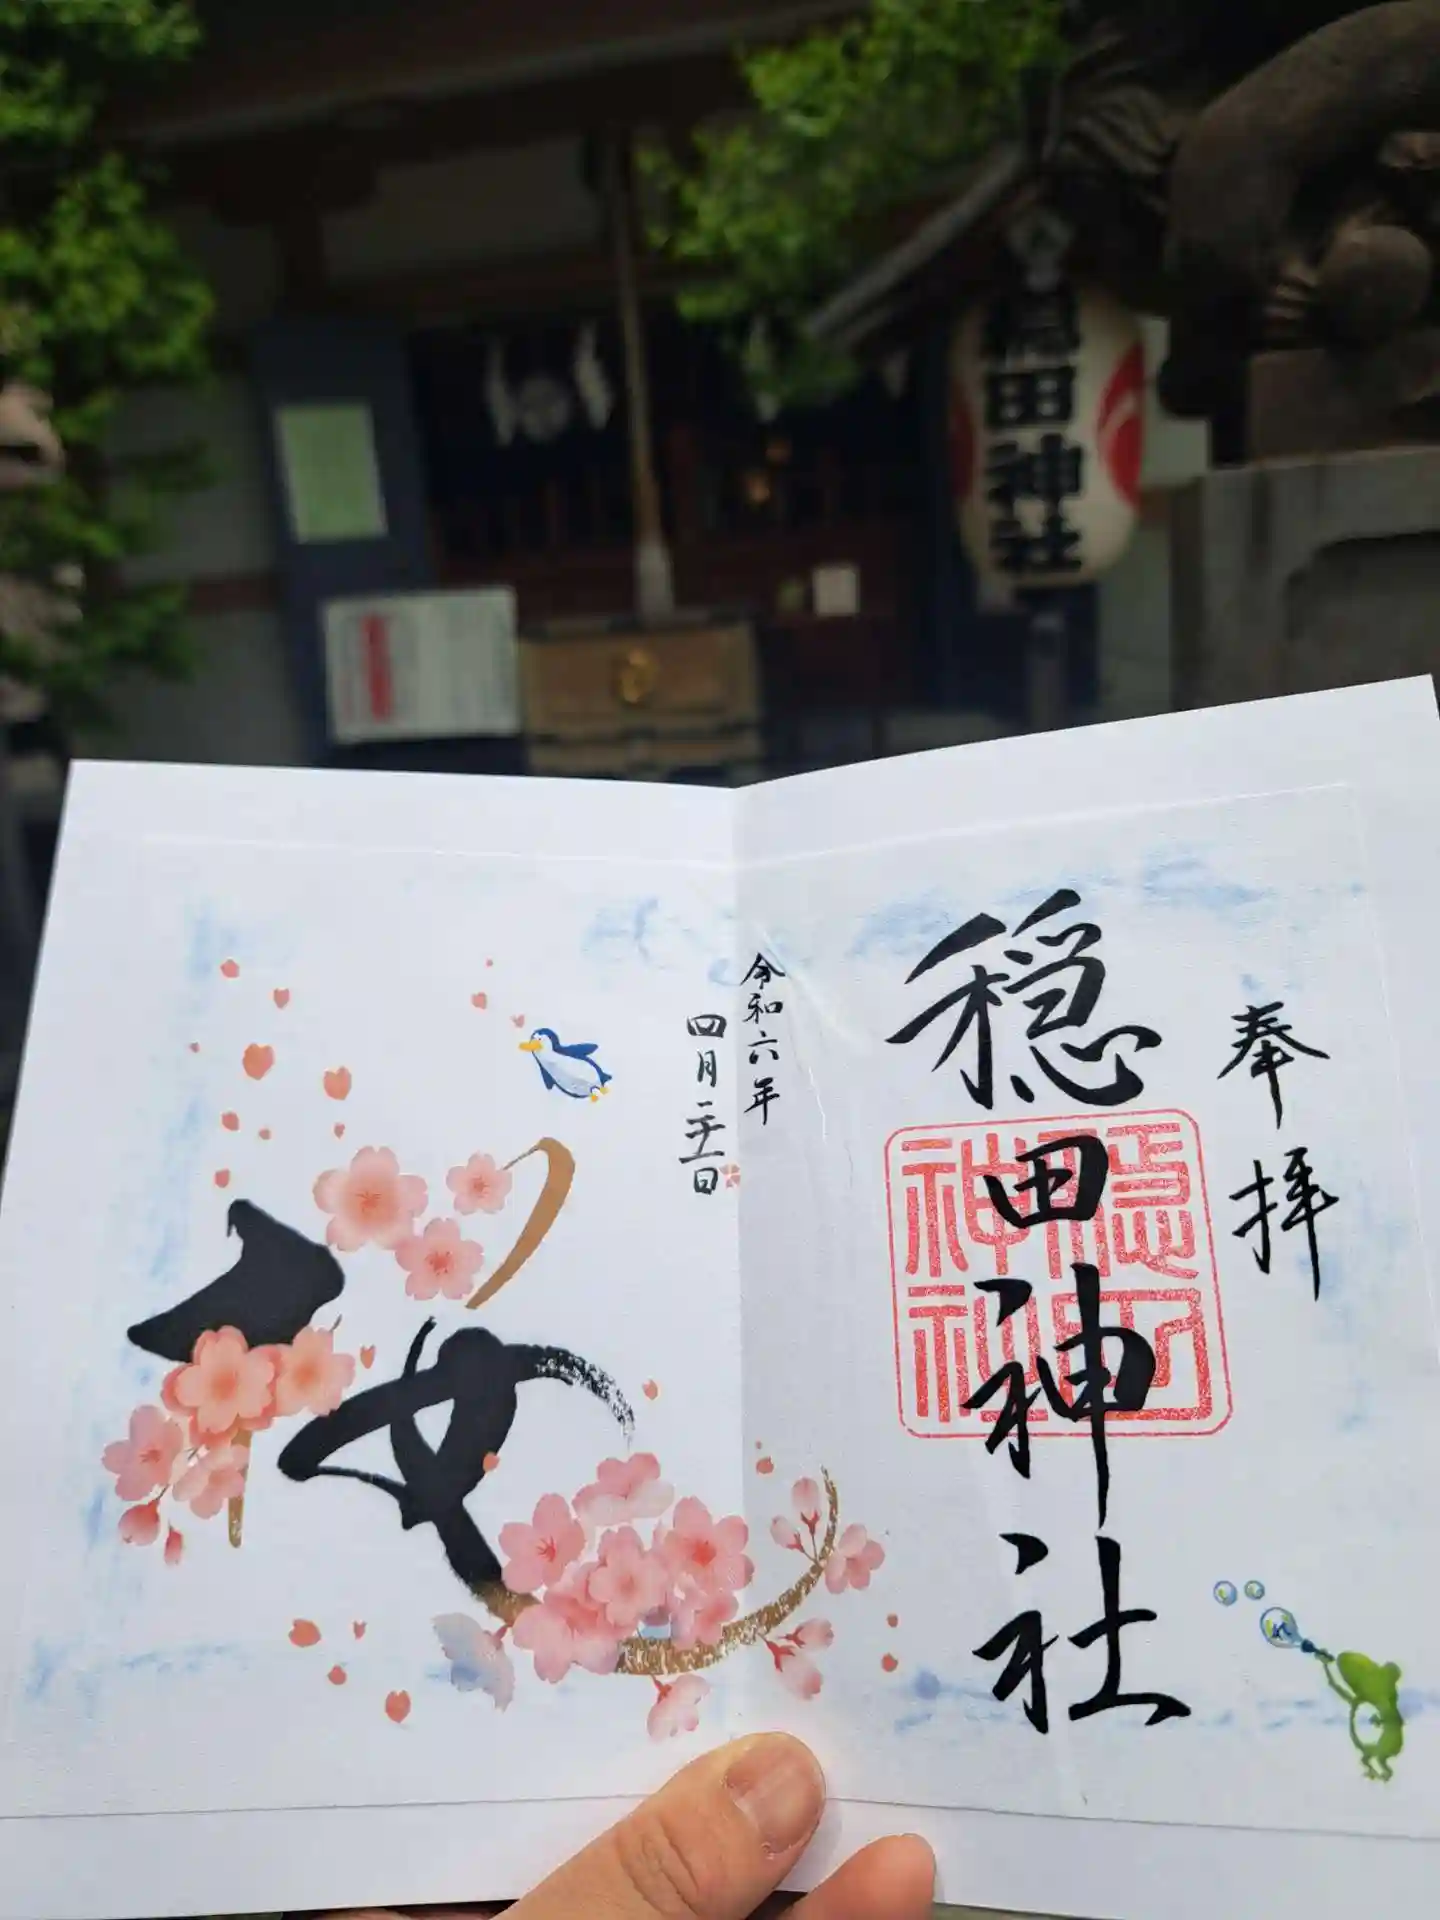 田神社
奉拝
穏田神社
隠田
神社
令和六年
四月二十一日
桜